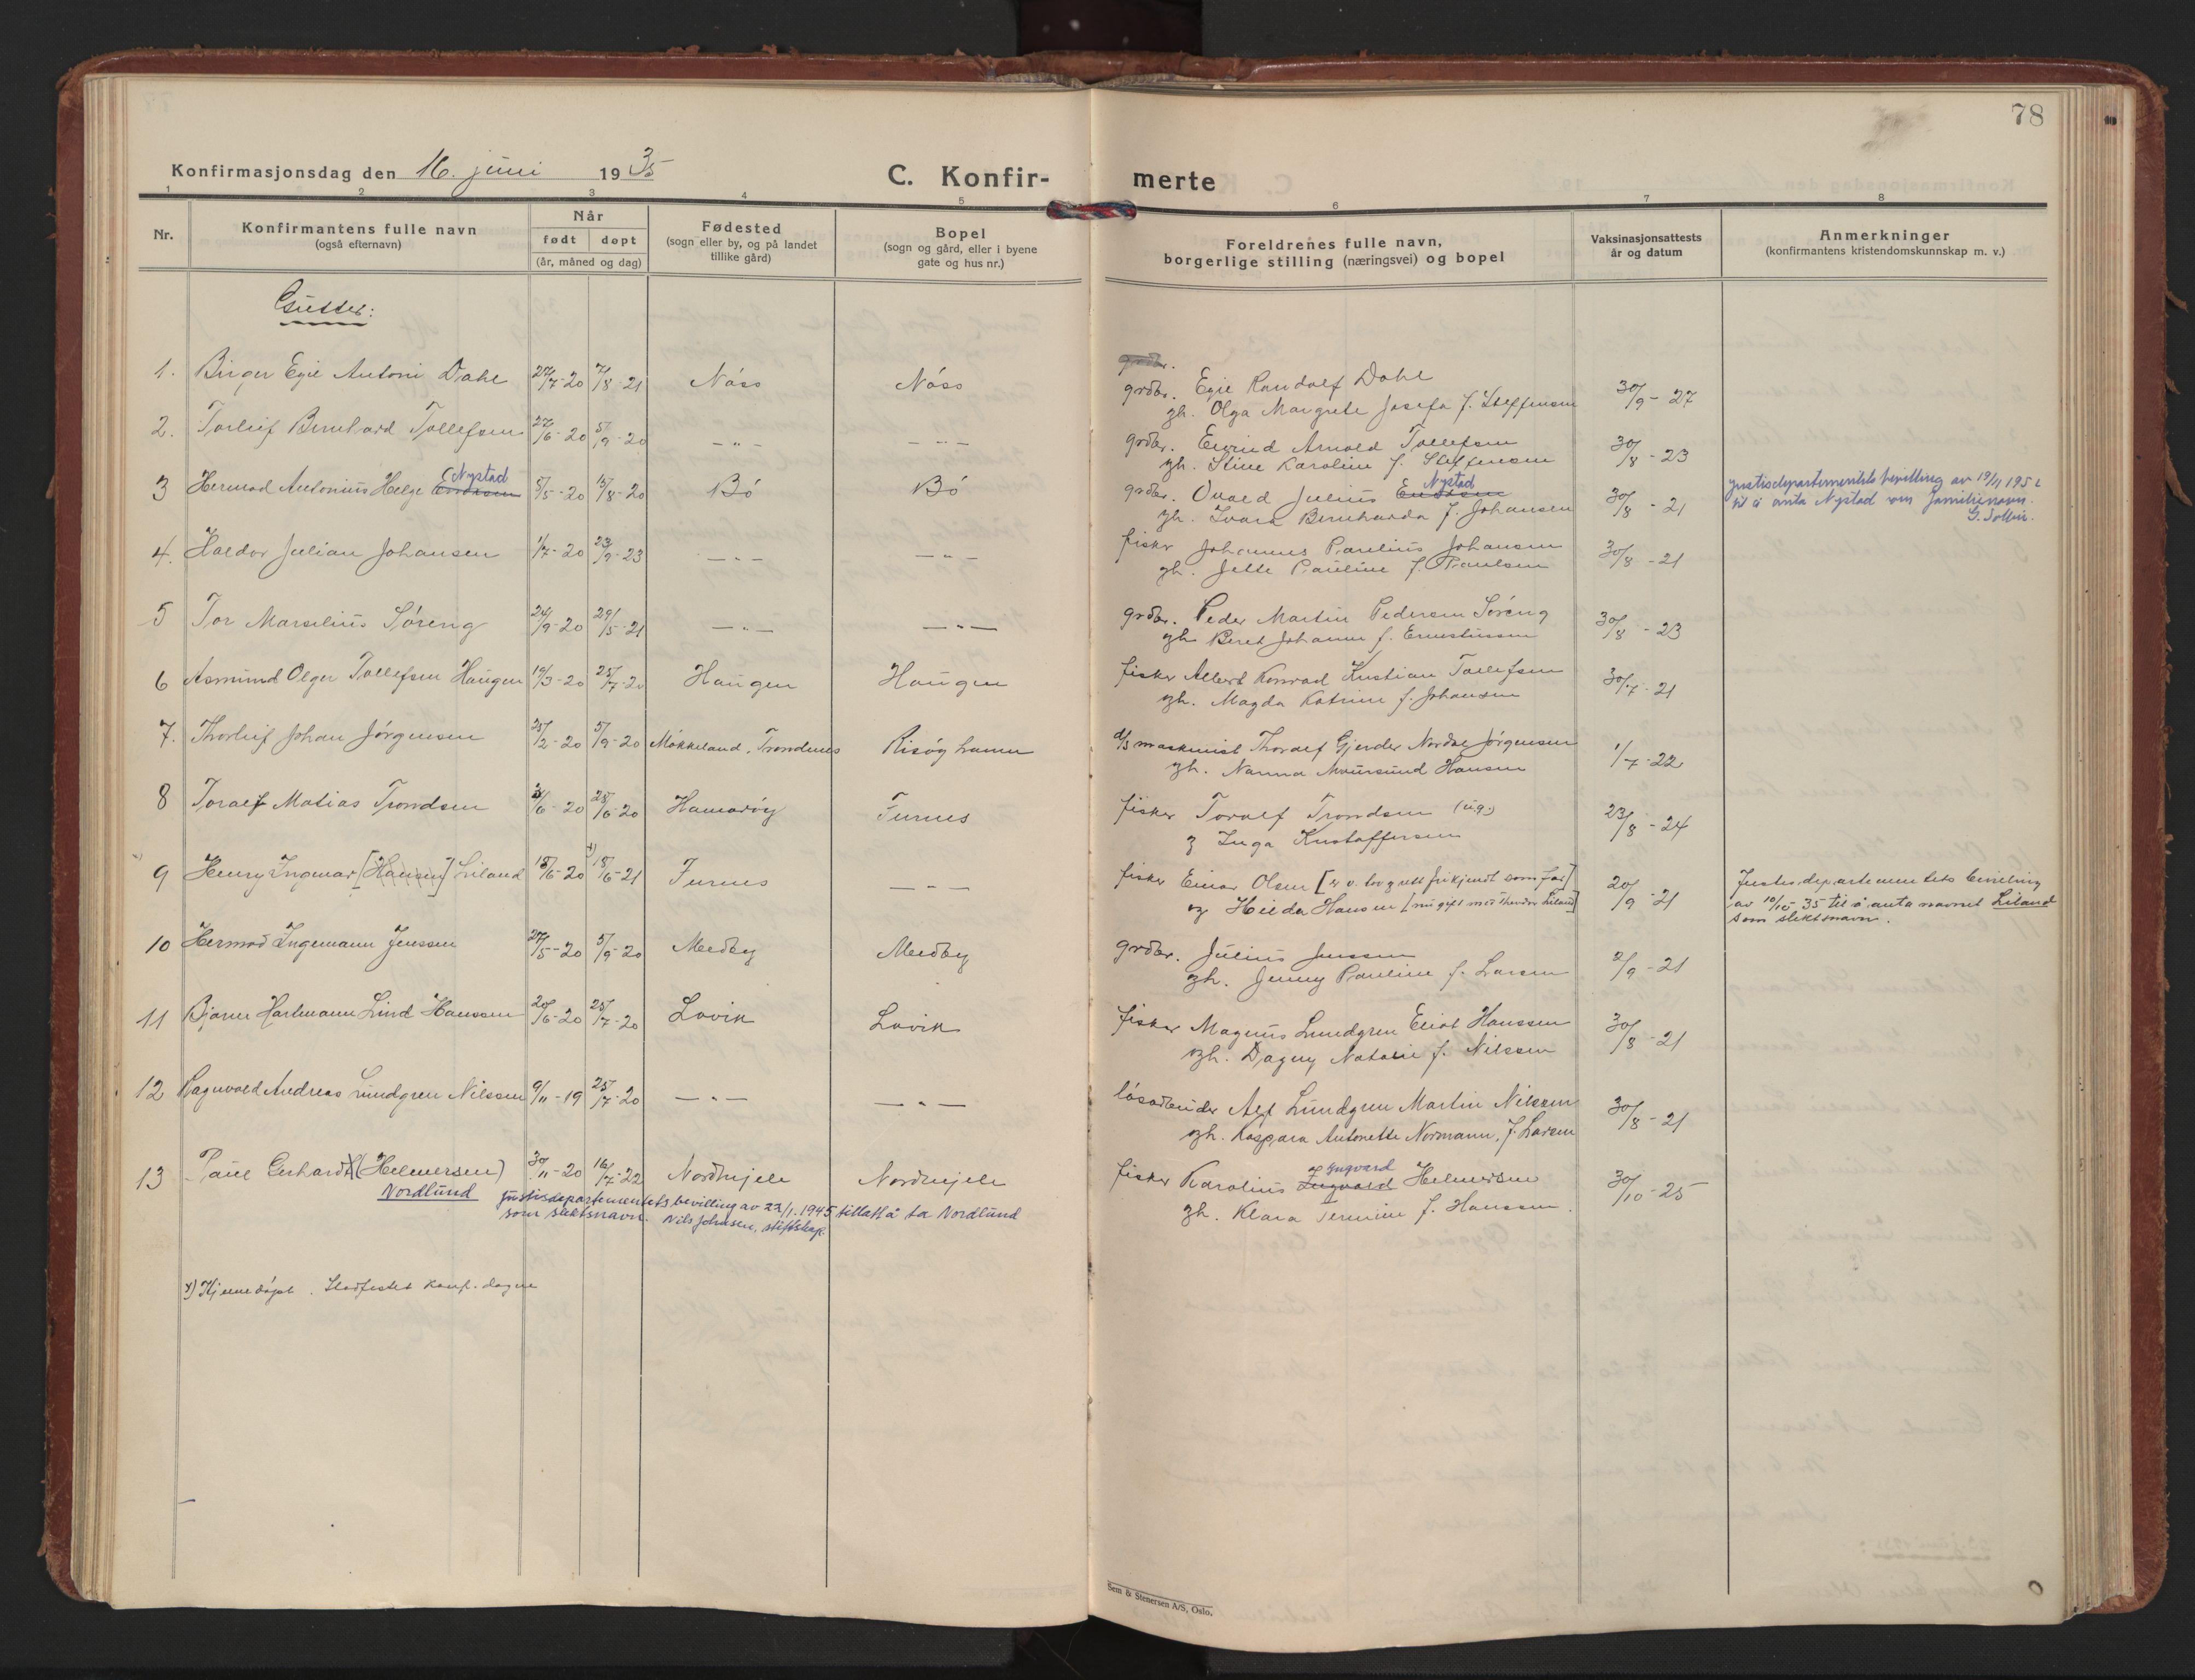 78
Konfirmasjonsdag den 16. juni 1935
C. Konfir-
merte
1 2 3 4 5 6 7 8
Nr.
Konfirmantens fulle navn
(også efternavn)
Når
født døpt
(år, måned og dag)
Fødested
(sogn eller by, og på landet
tillike gård)
Bopel
(sogn og gård, eller i byene
gate og hus nr.)
Foreldrenes fulle navn,
borgerlige stilling (næringsvei) og bopel
Vaksinasjonsattests
år og datum
Anmerkninger
(konfirmantens kristendomskunnskap m. v.)
Gutter:
1. Birger Egil Antoni Dahl 27/7-20 7/8-21 Nóss Nóss grdbr. Egil Randolf Dahl 30/9-27
gh. Olga Margrete Josefa f. Steffensen
2. Torleif Bernhard Tollefsen 27/6-20 5/9-20 —"— —"— grdbr. Eivind Arnold Tollefsen 30/8-23
gh. Stine Karoline f. Steffensen
3 Hermod Antonius Helge Nystad 5/5-20 15/8-20 Bó Bó grdbr. Ovald Julius Nystad 30/8-21
gh. Ivara Bernharda f. Johansen
Justisdepartementets bevilling av 19/11 1952
til å anta Nystad som familienavn.
4. Haldor Julian Johansen 1/7-20 23/9-23 —"— —"— fisker Johannes Paulius Johansen 30/8-21
gh. Jette Pauline f. Paulsen
5 Tor Marselius Sóreng 24/9-20 29/5-21 —"— —"— grdbr. Peder Martin Pedersen Sóreng 30/8-23
gh. Beret Johanne f. Ernestussen
6 Asmund Olger Tollefsen Haugen 19/3-20 25/7-20 Haugen Haugen fisker Albert Konrad Kristian Tollefsen 30/7-21
gh. Magda Katrine f. Johansen
7. Thorleif Johan Jórgensen 25/2-20 5/9-20 Mókkeland, Trondenes Risóyhamn d/s maskinist Thoralf Gjerder Nordal Jórgensen 1/7-22
gh. Nanna Maursund Hansen
8 Toralf Matias Trondsen 2/6-20 25/6-20 Hamaróy Furnes fisker Toralf Trondsen (ug.) 23/8-24
g Inga Kristoffersen
9 Henry Ingmar [Hansen] Liland 18/6-20 x) 18/6-21 Furnes —"— fisker Einar Olsen [er v. lovg rett frikjendt som far] 20/9-21
og Hilda Hansen [nu gift med Theodor Liland]
Justisdepartementets bevilling
av 10/10-35 til å anta navnet Liland
som slektsnavn.
10 Hermod Ingemann Jenssen 27/5-20 5/9-20 Medby Medby grdbr. Julius Jenssen 2/9-21
gh. Jenny Pauline f. Larsen
11 Bjarne Hartmann Lind Hanssen 20/6-20 25/7-20 Lovik Lovik fisker Magnus Lundgren Eliot Hanssen 30/8-21
gh. Dagny Natalie f. Nilssen
12 Ragnvald Andreas Lundgren Nilssen 9/11-19 25/7-20 —"— —"— lósarbeider Alf Lundgren Martin Nilssen 30/8-21
gh. Kaspara Antonette Normann, f. Larsen
13 Paul Gerhardt (Helmersen) 30/11-20 16/7-22 Nordmjele Nordmjele fisker Karolius Ingvard Helmersen 30/10-25
gh. Klara Termine f. Hanssen.
Nordlund justisdepartementets bevilling av 22/1.1945 tillatt å ta Nordlund
som slektsnavn. Nils Johnsen, stiftskap.
x) Hjemedópt. Stadfestet konf. dagen
Sem & Stenersen A/S, Oslo.